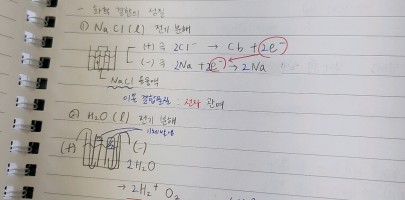 - 화학 결합의 성질
① NaCl(l) 전기 분해
(+)극 2Cl⁻ → Cl₂ + 2e⁻
(-)극 2Na + 2e⁻ → 2Na
NaCl 용융액
이온 결합물질 : 전자 관여
② H₂O(l) 전기 분해
(+) (-)
2H₂O
→ 2H₂ + O₂